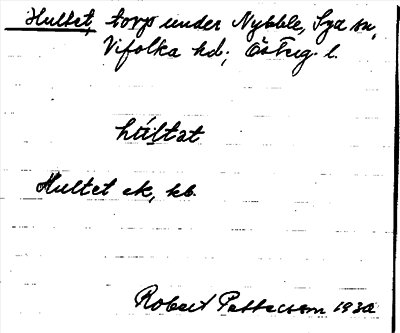 Hultet, torp under Nybble, Sya sn,
Vifolka hd; Österg. l.
hu̇ltət
Hultet ek, kb.
Robert Pettersson 1932